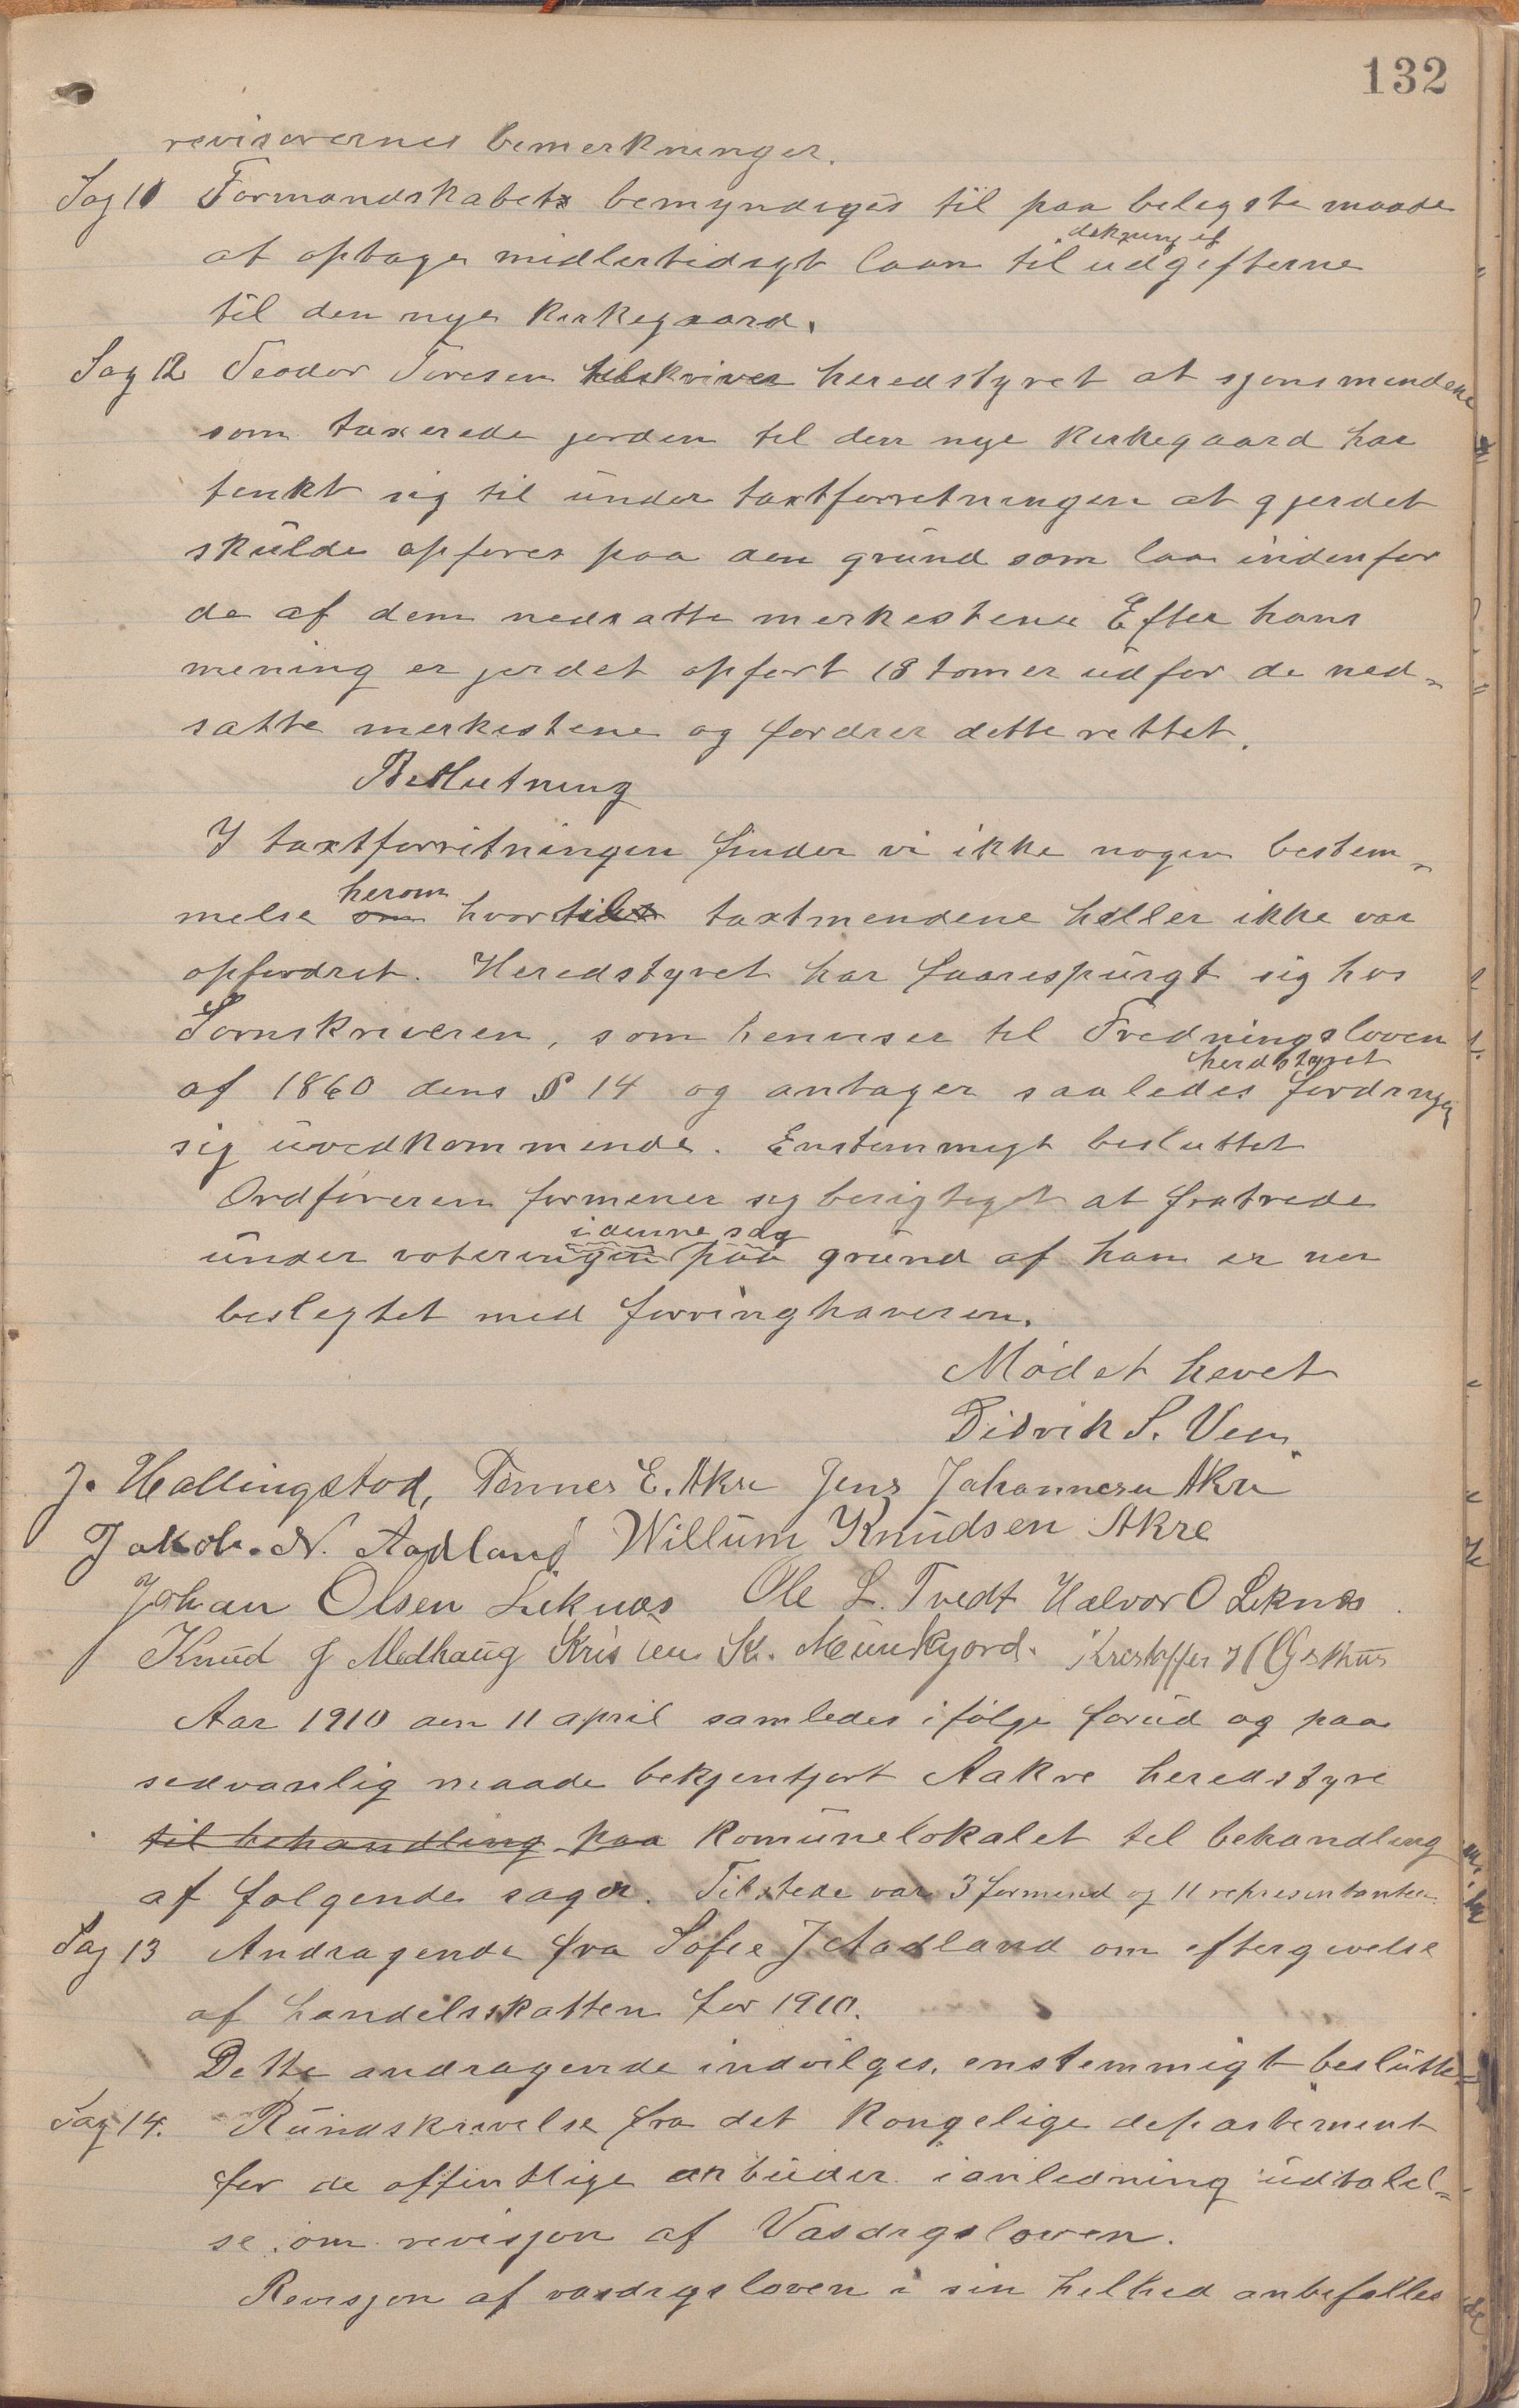 132
revisorernes bemerkninger.
Sag 11 Formandskabet bemyndiges til paa belegste maade
at optage midlertidigt laan til dekning af udgifterne
til den nye kirkegaard.
Sag 12 Teodor Toresen tilskriver heredstyret at sjønsmendene
som taxerede jorden til den nye kirkegaard har
tenkt sig til under taxtforretningen at gjerdet
skulde opføres paa den grund som laa indenfor
de af dem nedsatte merkestene Efter hans
mening er jerdet opført 18 tomer udfor de ned-
satte merkestene og fordrer dette rettet.
Beslutning
I taxtforretningen finder vi ikke nogen bestem-
melse om herom hvortil taxtmendene heller ikke var
opfordret. Heredstyret har faarespurgt sig hos
Sorenskriveren, som henviser til Fredningsloven
af 1860 dens § 14 og antager saaledes herdstyret fordringen
sig uvedkommende. Enstemmigt besluttet
Ordføreren formener sig berigtiget at fratrede
under voteringen i denne sag paa grund af han er ner
beslegtet med forringhaveren.
Mødet hevet
Didrik S. Vea.
J. Hallingstad, Tønnes E. Akre Jens Johannesen Akre
Jakob. N. Aadland Willum Knudsen Akre
Johan Olsen Liknes Ole L. Tvedt Halvor O Liknes
Knud J Medhaug Kristen K. Munkjord. Kristoffer
Aar 1910 den 11 april samledes ifølge forud og paa
sedvanlig maade bekjentjort Aakre heredstyre
til behandling paa komunelokalet til behandling
af følgende sager. Tilstede var 3 formend og 11 representanter.
Sag 13 Andragende fra Sofie J Aadland om eftergivelse
af handelsskatten for 1910.
Dette andragende indvilges, enstemmigt beslutte
Sag 14. Rundskrivelse fra det kongelige departement
for de offentlige arbeider i anledning udtalel-
se om revisjon af Vasdragsloven.
Revisjon af vasdragsloven i sin helhed anbefalles